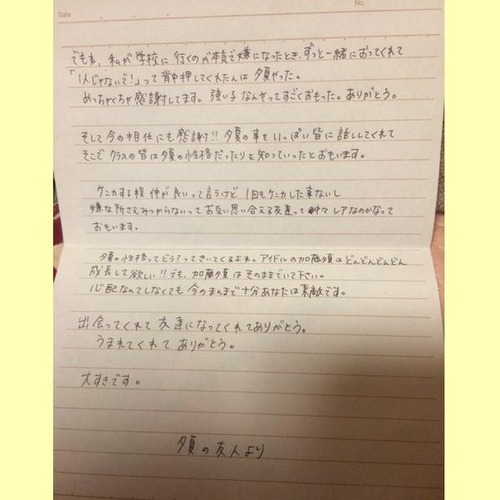 Date
No.
でもね、私が学校に行くのが本気で嫌になったとき、ずっと一緒におってくれて
「1人じゃないで!」って背中押してくれたんは夕夏やった。
めっちゃくちゃ感謝してます。強い子なんやってすごくおもった。ありがとう。
そして今の担任にも感謝!!夕夏の事もいっぱい皆に話ししてくれて
そこでクラスの皆は夕夏の性格だったりを知っていったとおもいます。
ケンカする程仲が良いって言うけど1回もケンカした事ないし
嫌な所さえみつからないってお互い思い合える友達って中々レアなのかなって
おもいます。
夕夏の性格ってどう?ってきいてくるよね。アイドルの加藤夕夏はどんどんどんどん
成長して欲しい!!でも、加藤夕夏はそのままでいて下さい。
心配なんてしなくても今のまんまで十分あなたは素敵です。
出会ってくれて友達になってくれてありがとう。
うまれてくれてありがとう。
大すきです。
夕夏の友人より